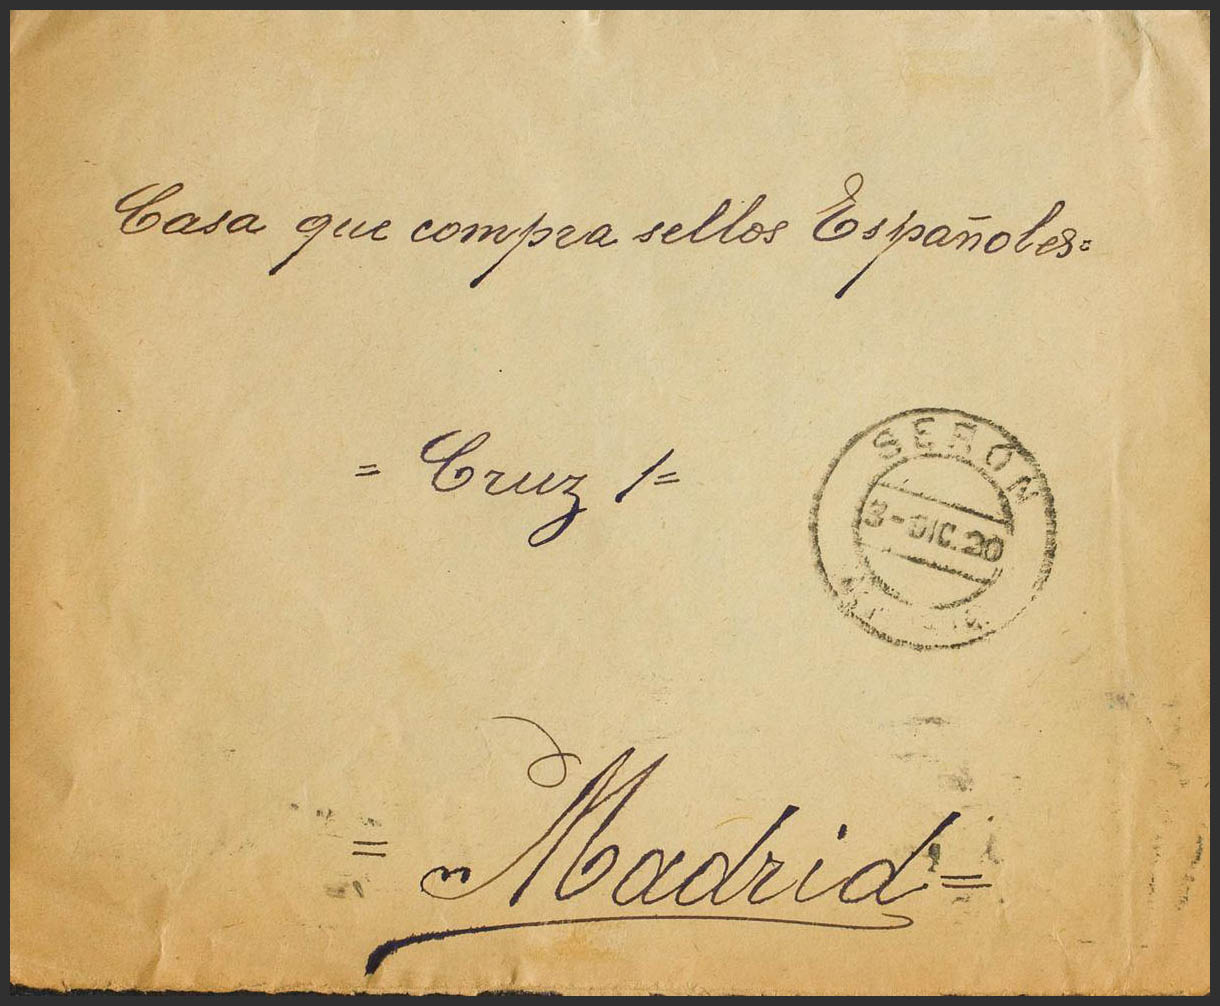 Casa que compra sellos Españoles=
= Cruz 1=
SERÓN
3-DIC.20
= Madrid =